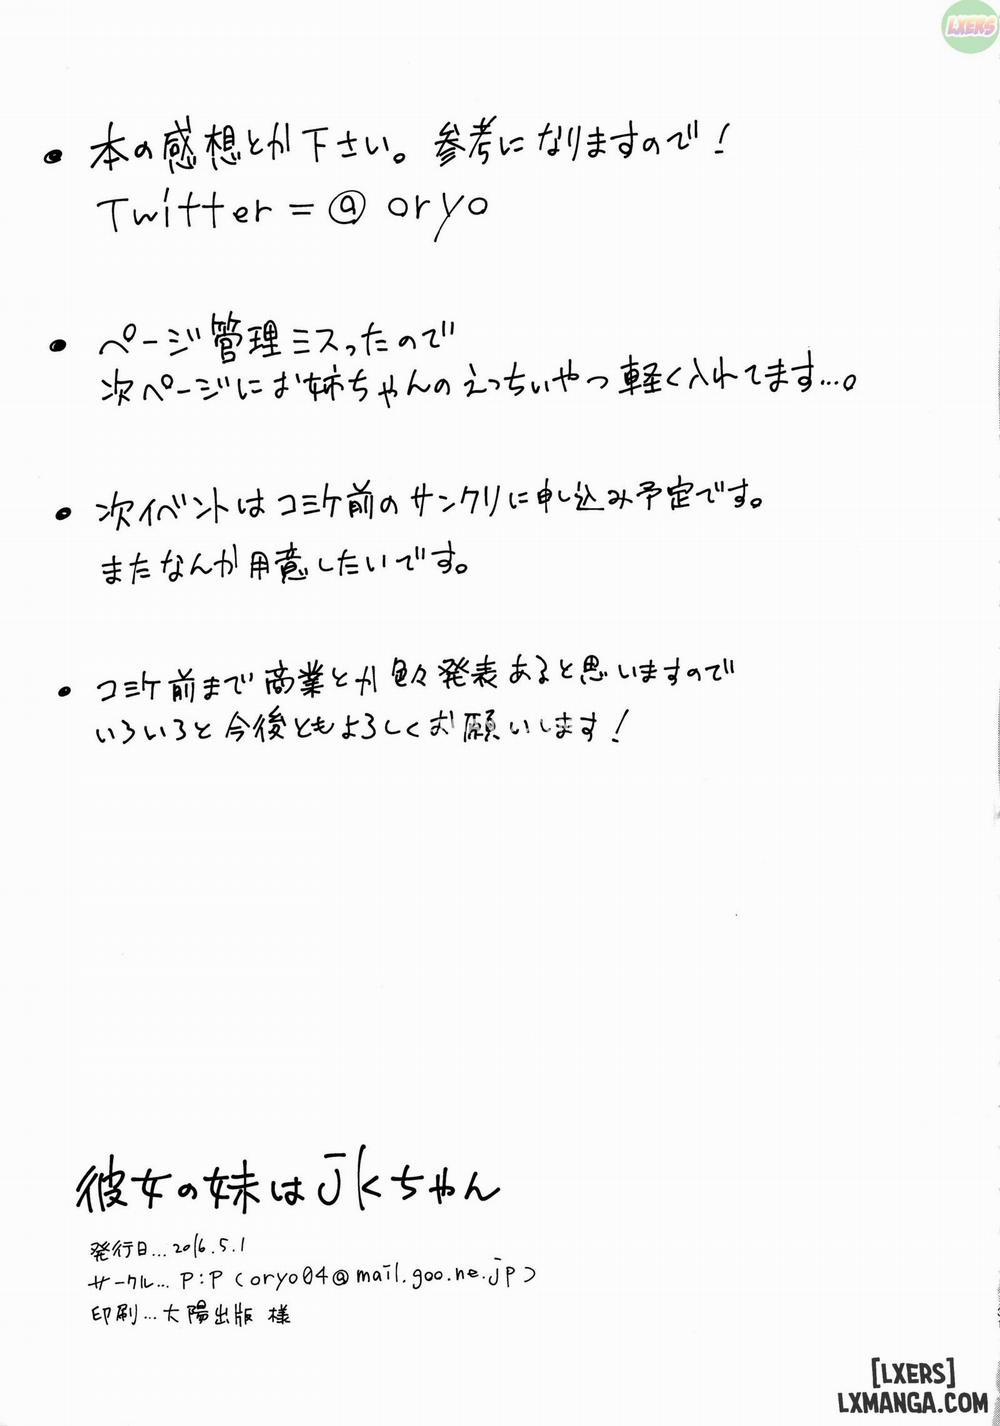 LXERS
● 本の感想とか下さい。参考になりますので！
Twitter = @oryo
● ページ管理ミスったので
次ページにお姉ちゃんのえっちぃやつ軽く入れてます…。
● 次イベントはコミケ前のサンクリに申し込み予定です。
またなんか用意したいです。
● コミケ前まで商業とか色々発表あると思いますので
いろいろと今後ともよろしくお願いします！
彼女の妹はJKちゃん
発行日…2016.5.1
サークル…P:P(oryo04@mail.goo.ne.jp)
印刷…大陽出版 様
[LXERS]
LXMANGA.COM